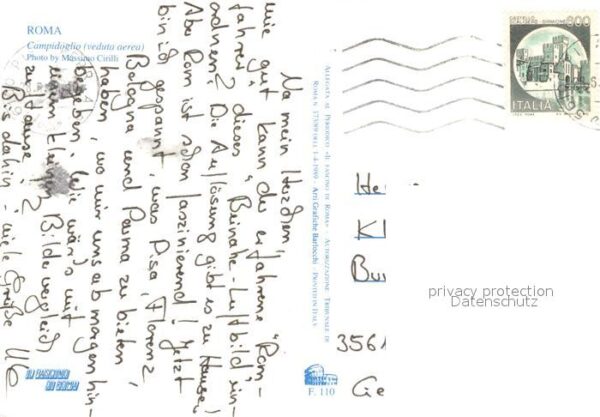 ROMA
Campidoglio (veduta aerea)
Photo by Massimo Cirilli
Na mein Herzchen,
wie gut kann der erfahrene "Rom-
fahrer" dieses "Beinahe-Luftbild" ein-
ordnen? Die Auflösung gibt es zu Hause!
Aber Rom ist schon faszinierend! Jetzt
bin ich gespannt, was Pisa, Florenz,
Bologna und Parma zu bieten
haben, wo wir uns ab morgen hin-
begeben. Wie wär's mit
einem kleinen Bildvergleich
zu Hause?
Bis dahin - viele Grüße
ALLEGATA AL PERIODICO «IL FASCINO DI ROMA» - AUTORIZZAZIONE TRIBUNALE DI
ROMA N. 173/89 DELL'1-4-1989 - Arti Grafiche Barlocchi - PRINTED IN ITALY
IL FASCINO
DI ROMA
F. 110
800
ITALIA
He
Kl
Bu
3561
Ge
privacy protection
Datenschutz